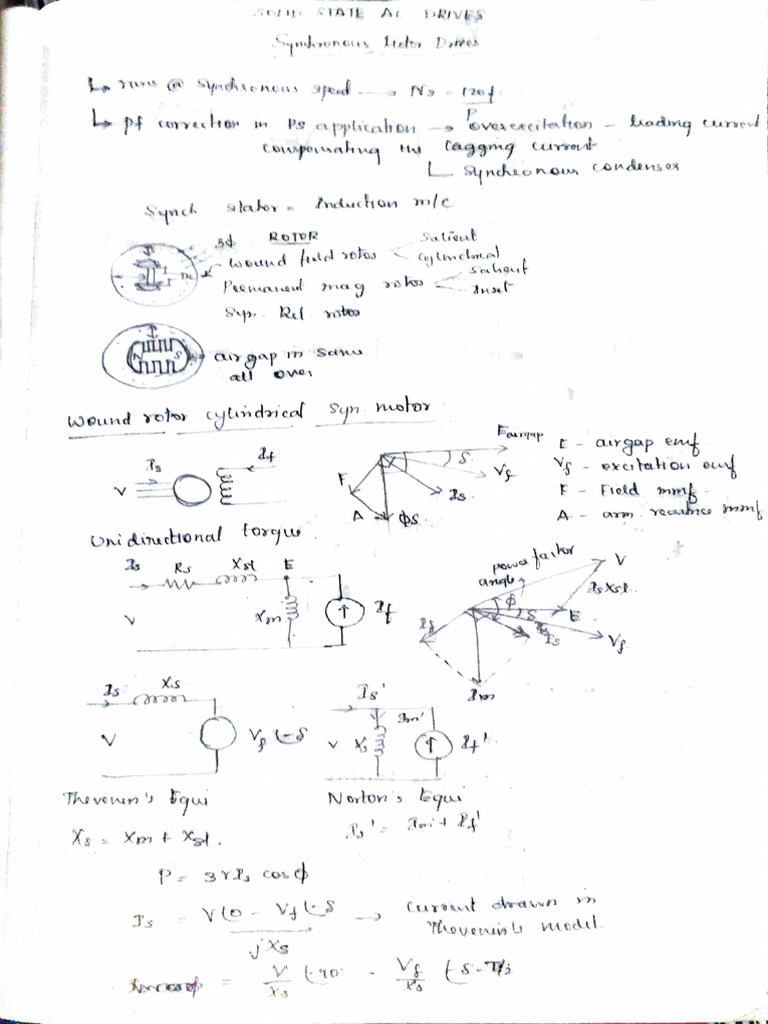 SOLID STATE AC DRIVES
Synchronous Motor Drives
↳ runs @ synchronous speed → Ns = 120f
P
↳ pf correction in Ps application → overexcitation - leading current
compensating the lagging current
↳ synchronous condenser
Synch stator = Induction m/c
3φ ROTOR
Salient
wound field rotor
cylindrical
Salient
Permanent mag rotor
Inset
Syn. Rel. rotor
N S
air gap in same
all over
Wound rotor cylindrical syn. motor
Is If
V
Eairgap
δ
Vf
F
Is
A φs
E - airgap emf
Vf - excitation emf
F - Field mmf
A - arm reactance mmf
Unidirectional torque
Is Rs Xsl E
V Xm If
power factor
angle
V
IsXsl
φ
δ E
If
Is
Vf
Im
Is Xs
V Vf ∠-δ
Is'
Im'
V Xs If'
Thevenin's Equi
Norton's Equi
Xs = Xm + Xsl.
Is' = Im' + If'
P = 3VIs cosφ
Is = V∠0 - Vf∠-δ → Current drawn in
jXs Thevenin's model.
= V/Xs ∠-90 - Vf/Xs ∠-δ-π/2